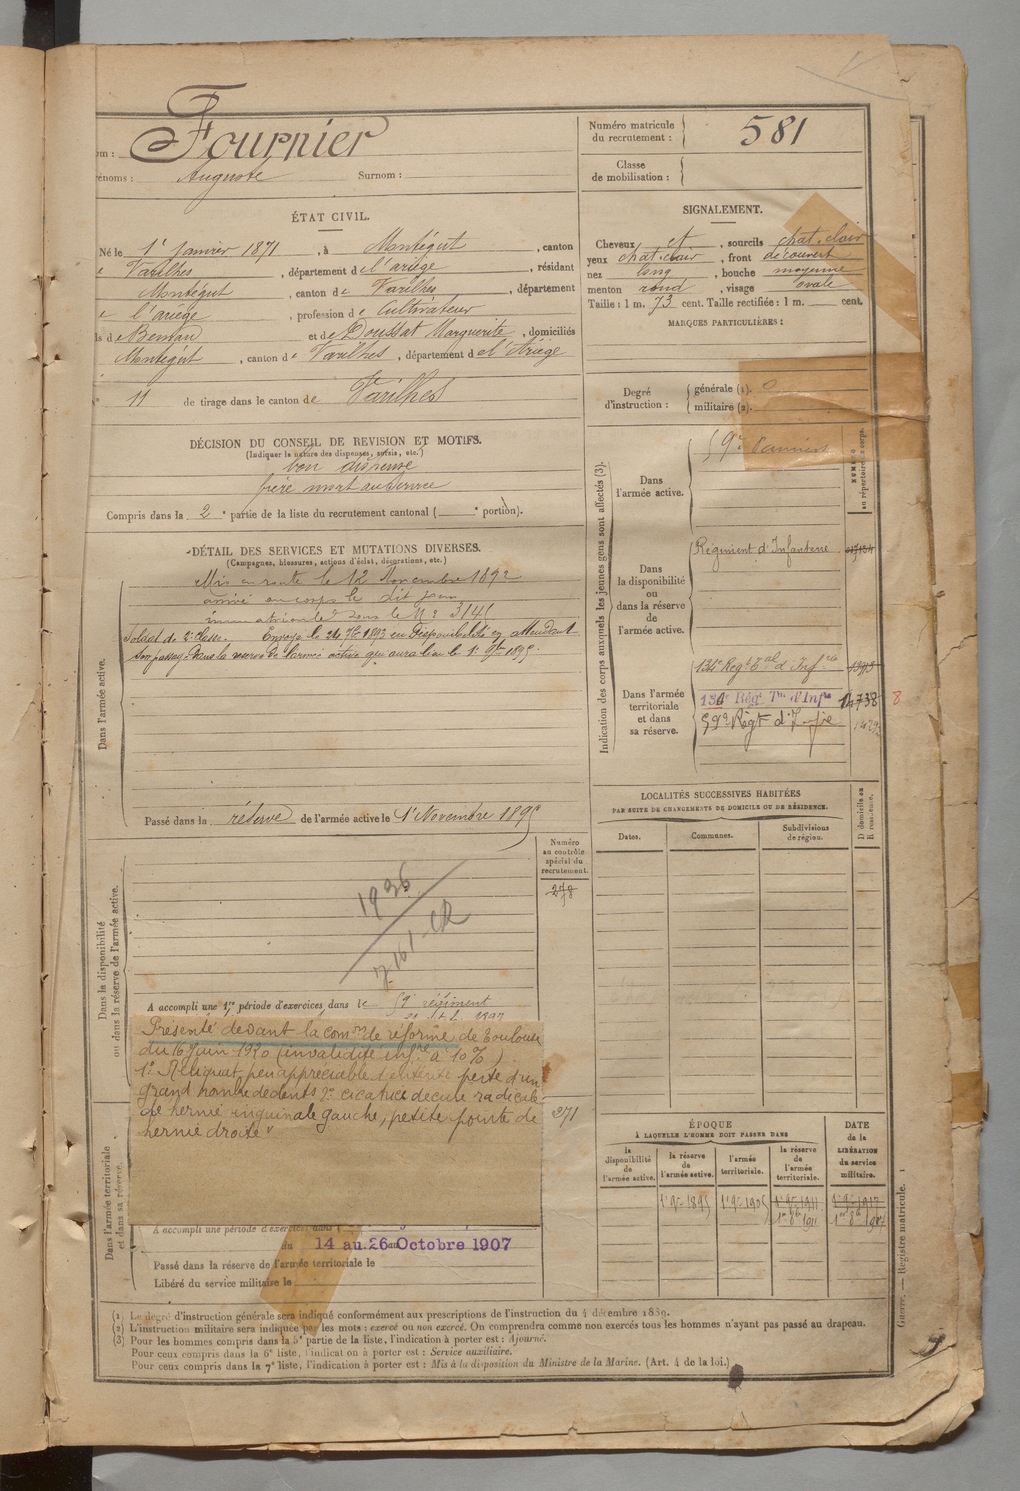 om : Fournier
rénoms : Auguste Surnom :
Numéro matricule
du recrutement : 581
Classe
de mobilisation :
ÉTAT CIVIL.
Né le 1r Janvier 1871, à Montégut, canton
de Varilhes, département de l'ariège, résidant
Montégut, canton de Varilhes, département
de l'ariège, profession de Cultivateur
ls de et de Doussat Marguerite, domiciliés
Montégut, canton de Varilhes, département de l'Ariège
N° 11 de tirage dans le canton de Varilhes
SIGNALEMENT.
Cheveux et, sourcils chat. clair
yeux chat. clair, front découvert
nez long, bouche moyenne
menton rond, visage ovale
Taille : 1 m. 73 cent. Taille rectifiée : 1 m. cent.
MARQUES PARTICULIÈRES :
Degré
d'instruction :
générale (1).
militaire (2).
DÉCISION DU CONSEIL DE REVISION ET MOTIFS.
(Indiquer la nature des dispenses, sursis, etc.)
bon dispensé
frère mort au service
Compris dans la 2e partie de la liste du recrutement cantonal ( e portion).
DÉTAIL DES SERVICES ET MUTATIONS DIVERSES.
(Campagnes, blessures, actions d'éclat, décorations, etc.)
Dans l'armée active.
Mis en route le 12 Novembre 1892
arrivé au corps le dit jour
immatriculé sous le N° 3145
Soldat de 2e classe. Envoyé le 24 7bre 1893 en disponibilité en attendant
son passage dans la réserve de l'armée active qui aura lieu le 1r 9bre 1895.
Passé dans la réserve de l'armée active le 1r Novembre 1895
Indication des corps auxquels les jeunes gens sont affectés (3).
NUMÉRO
au répertoire du corps.
Dans
l'armée active.
59e
Dans
la disponibilité
ou
dans la réserve
de
l'armée active.
Régiment d'Infanterie
Dans l'armée
territoriale
et dans
sa réserve.
134e Régt Tal d'Infrie
134e Régt Tal d'Infie 14738 8
59e Régt d'Infie
LOCALITÉS SUCCESSIVES HABITÉES
PAR SUITE DE CHANGEMENTS DE DOMICILE OU DE RÉSIDENCE.
Dates. Communes. Subdivisions
de région.
D domicile ou
R résidence.
Dans la disponibilité
ou dans la réserve de l'armée active.
Numéro
au contrôle
spécial du
recrutement.
1936
7161 CR
A accompli une 1re période d'exercices dans le 59e régiment
Présenté devant la comon de réforme de Toulouse
du 16 Juin 1920 (invalidité infre à 10%)
1° Reliquat peu appréciable d'entérite perte d'un
grand nombre de dents 2° cicatrice de cure radicale
de hernie inguinale gauche, petite pointe de
hernie droite"
271
Dans l'armée territoriale
et dans sa réserve.
A accompli une période d'exercices dans
du 14 au 26 Octobre 1907
Passé dans la réserve de l'armée territoriale le
Libéré du service militaire le
ÉPOQUE
À LAQUELLE L'HOMME DOIT PASSER DANS
la
disponibilité
de
l'armée active.
la réserve
de
l'armée active.
l'armée
territoriale.
la réserve
de
l'armée
territoriale.
DATE
de la
LIBÉRATION
du service
militaire.
1r 9bre 1895 1r 9bre 1905 1r 9bre 1911 1r 9bre 1917
1er 8bre 1911
(1) Le degré d'instruction générale sera indiqué conformément aux prescriptions de l'instruction du 4 décembre 1889.
(2) L'instruction militaire sera indiquée par les mots : exercé ou non exercé. On comprendra comme non exercés tous les hommes n'ayant pas passé au drapeau.
(3) Pour les hommes compris dans la 5e partie de la liste, l'indication à porter est : Ajourné.
Pour ceux compris dans la 6e liste, l'indication à porter est : Service auxiliaire.
Pour ceux compris dans la 7e liste, l'indication à porter est : Mis à la disposition du Ministre de la Marine. (Art. 4 de la loi.)
Guerre. — Registre matricule. 1